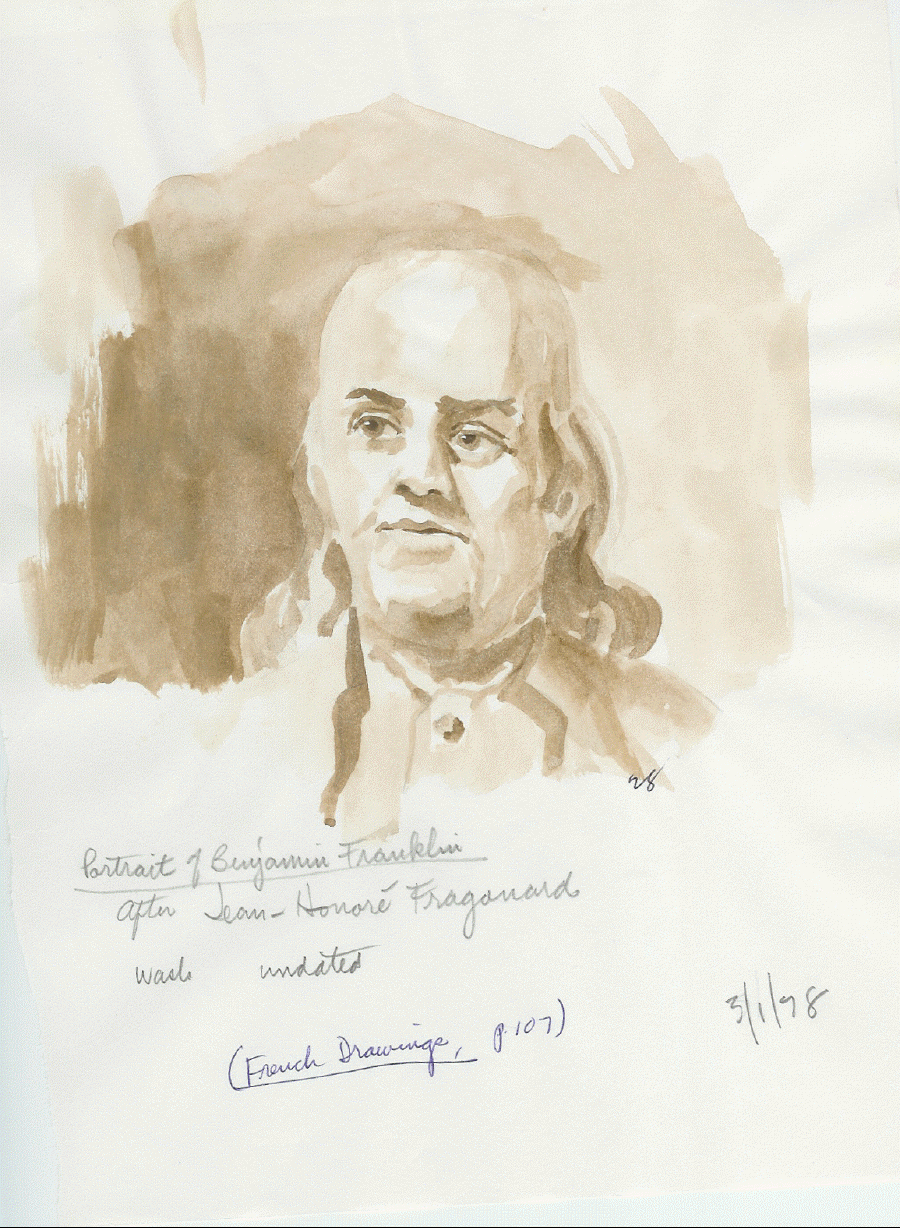 98
Portrait of Benjamin Franklin
after Jean-Honoré Fragonard
wash undated
3/1/98
(French Drawings, p.107)